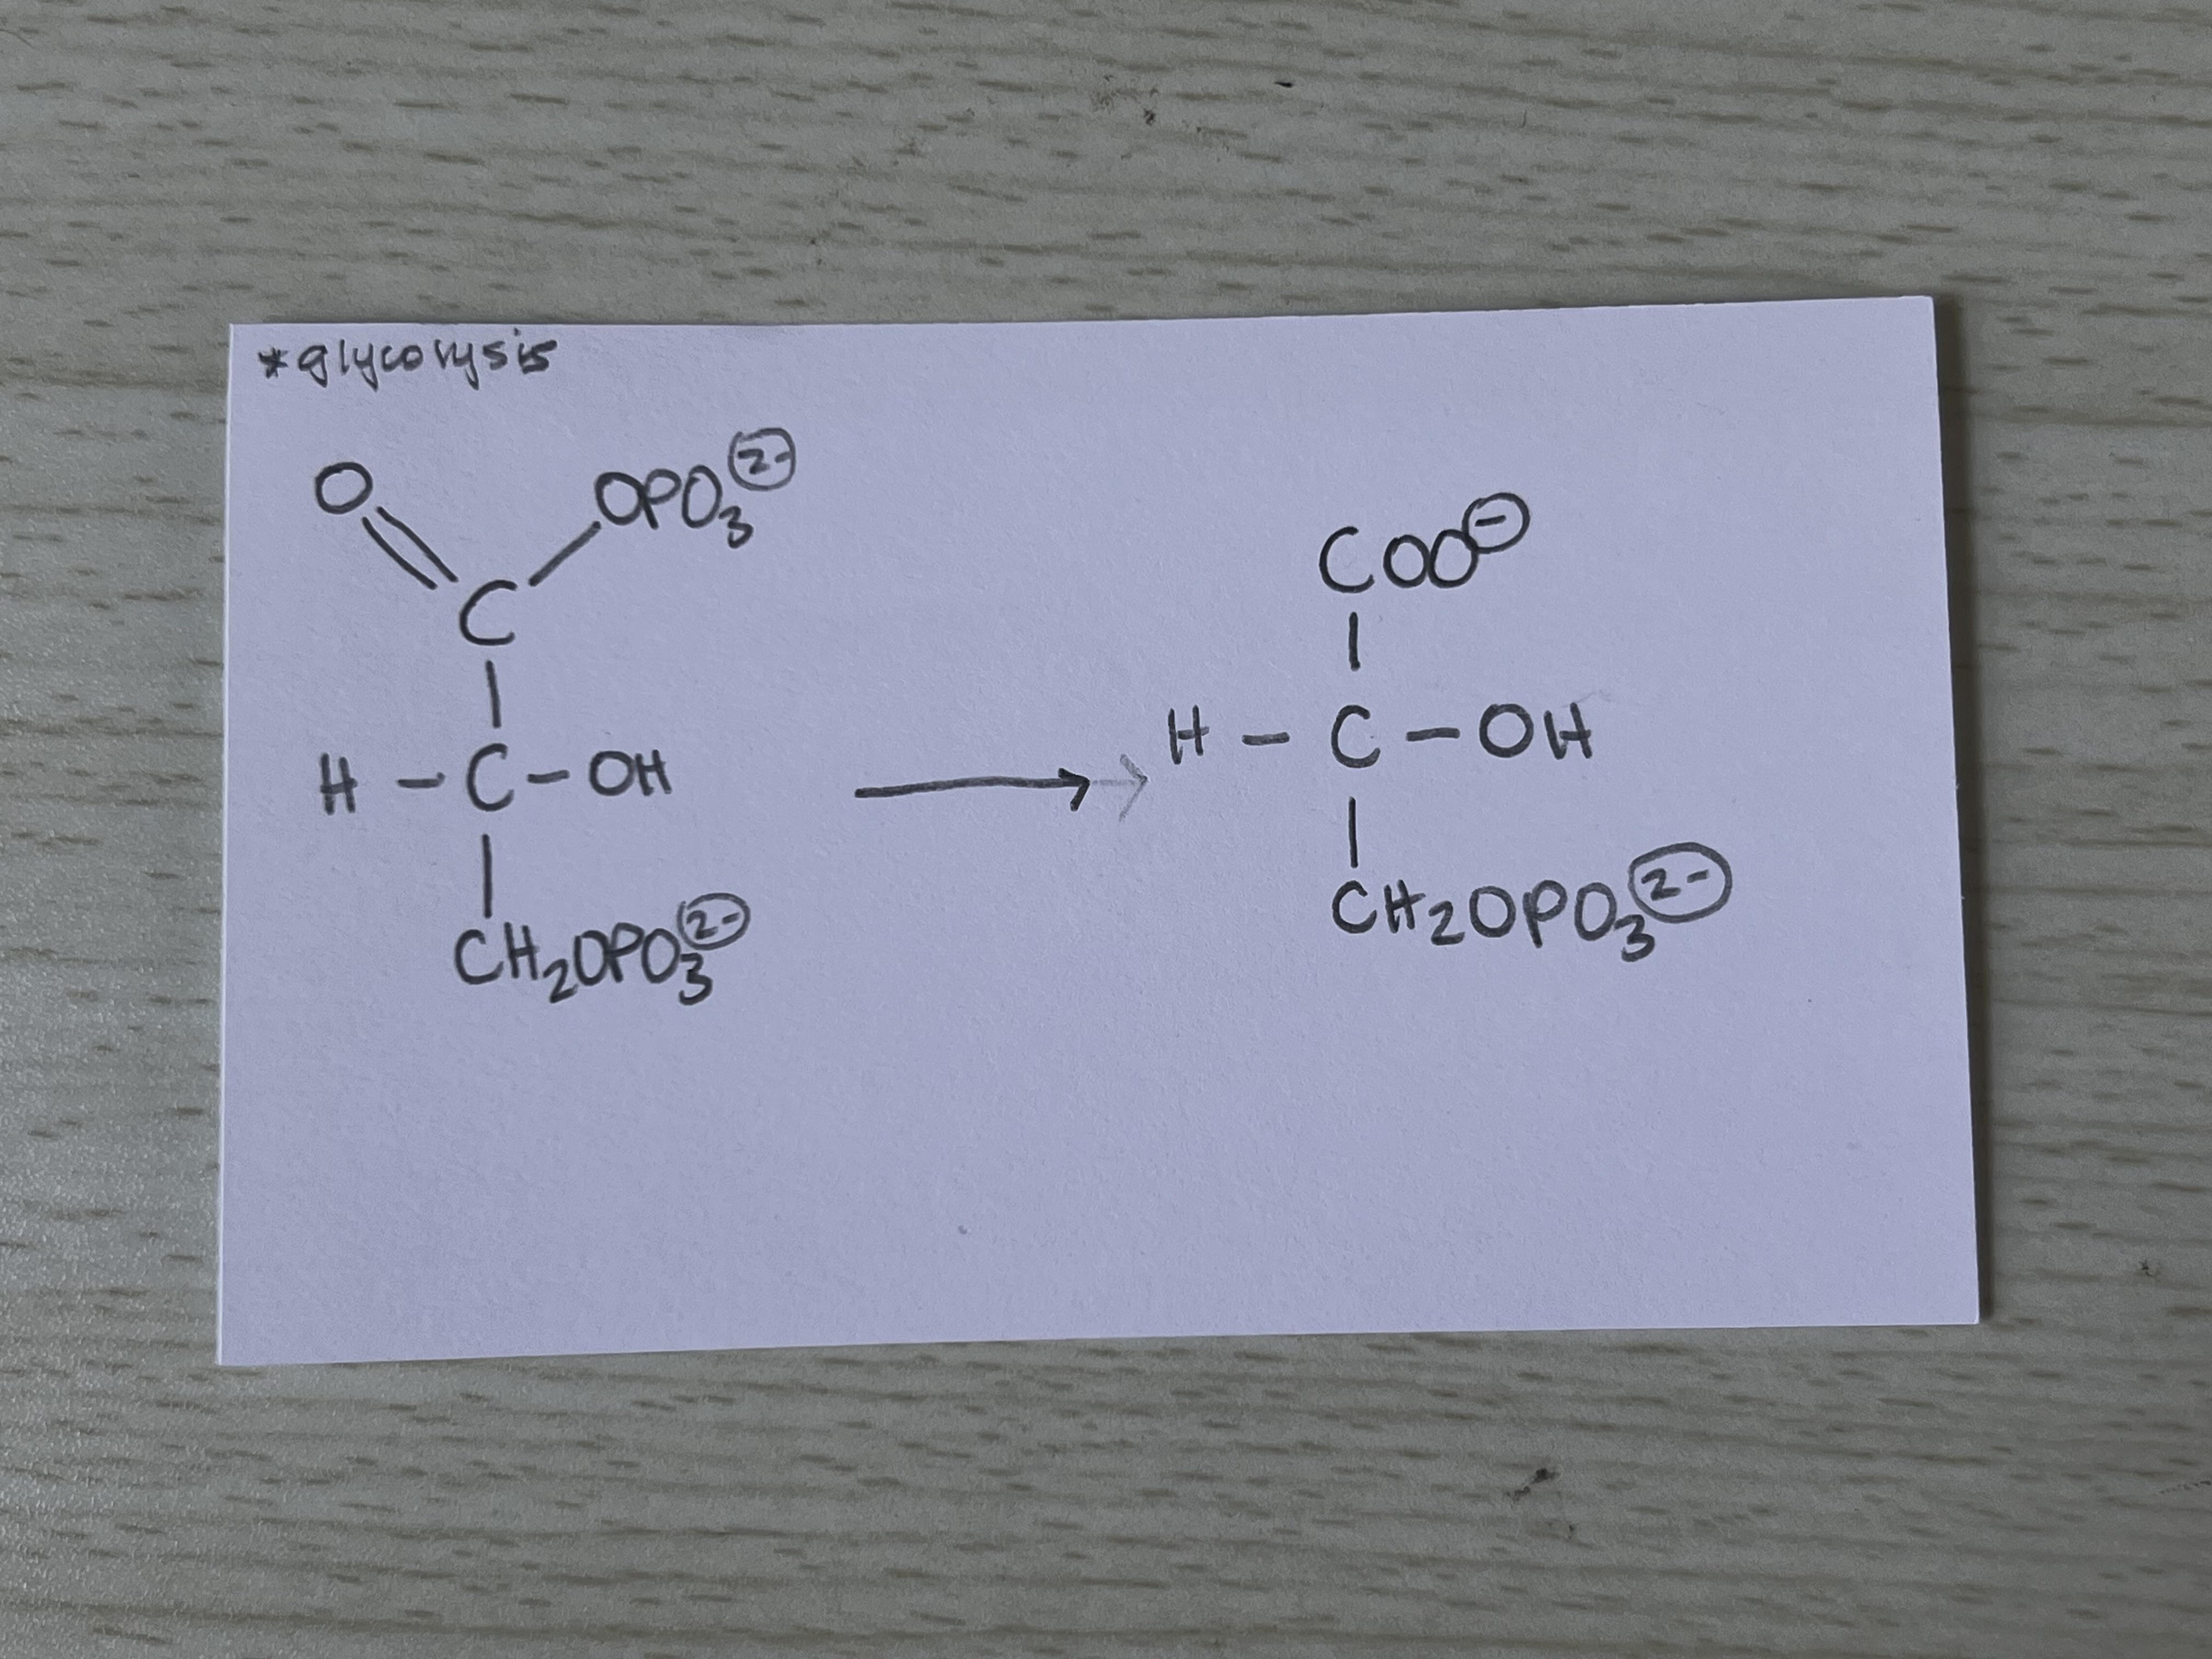 *glycolysis
O OPO₃²⁻
C
H - C - OH
CH₂OPO₃²⁻
COO⁻
H - C - OH
CH₂OPO₃²⁻